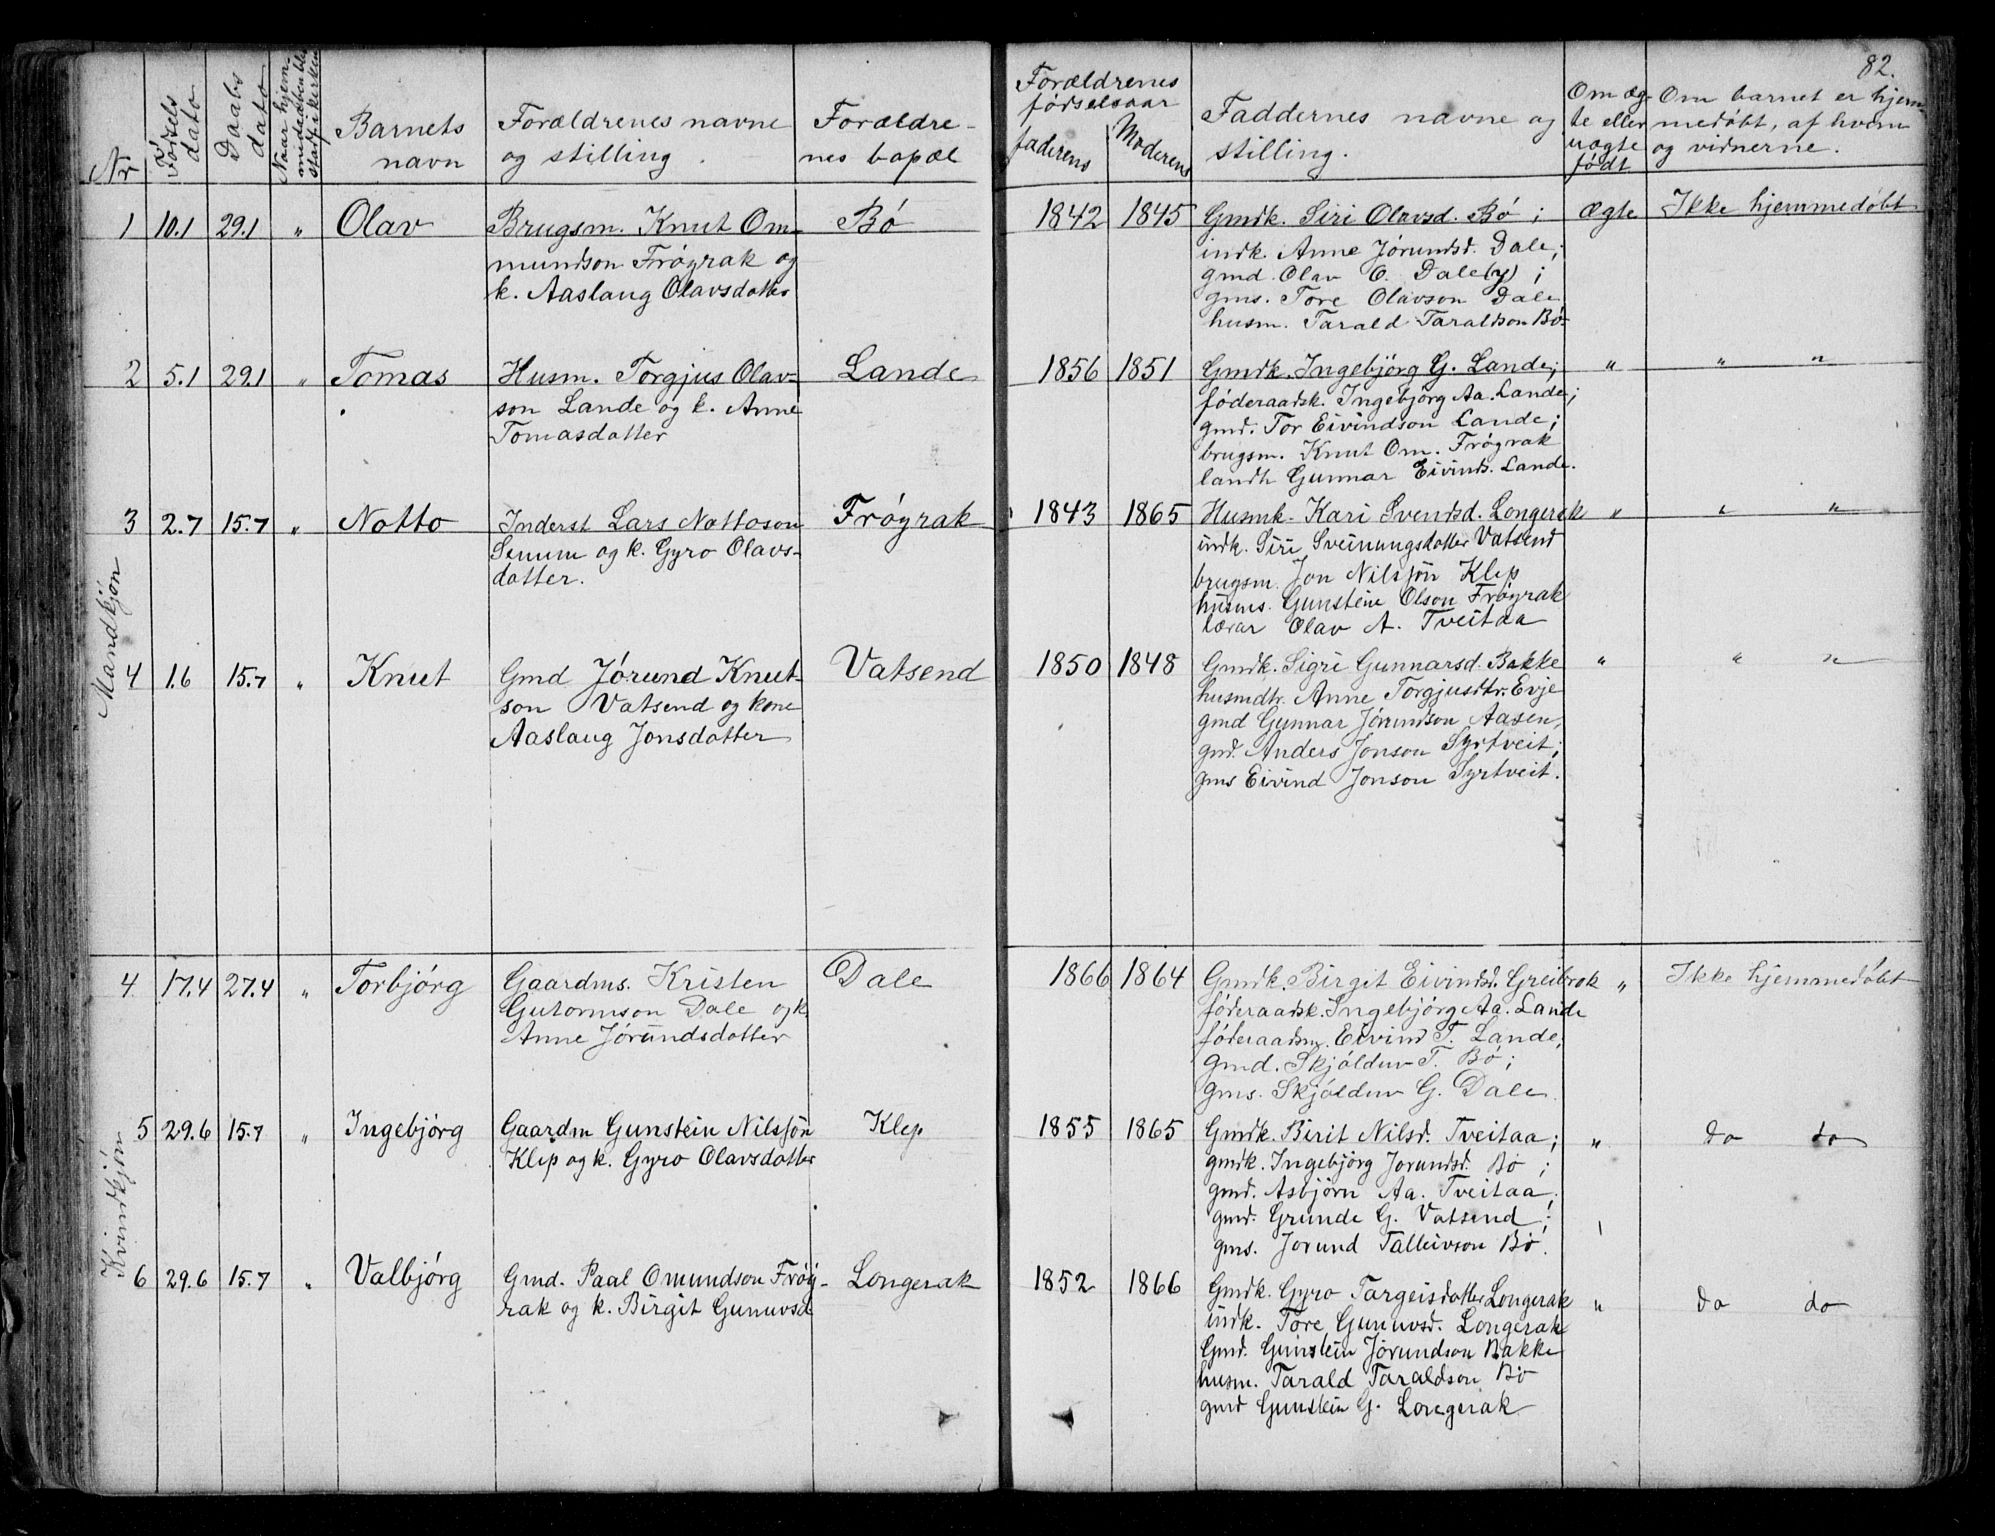 82.
Nr
Fødsels dato
Daabs dato
Naar hjemmedøbtenblev stadf. i kirken
Barnets navn
Forældrenes navne og stilling.
Forældrenes bopæl
Forældrenes fødselsaar
faderens
Moderens
Faddernes navne og stilling.
Om ægte eller uægte født
Om barnet er hjemmedøbt, af hvem og vidnerne.
Mandkjøn
1 10.1 29.1 " Olav
Brugsm. Knut Om-
mundson Frøyrak og
k. Aaslaug Olavsdatter
Bø
1842 1845
Gmdk. Siri Olavsd. Bø;
indk. Anne Jørundsd. Dale;
gmd. Olav O. Dale(y);
gms. Tore Olavson Dale
husm. Tarald Taraldson Bø
ægte
Ikke hjemmedøbt
2 5.1 29.1 " Tomas
Husm. Torgjus Olav-
son Lande og k. Anne
Tomasdatter
Lande
1856 1851
Gmdk. Ingebjörg G. Lande;
føderaadsk. Ingebjörg Aa. Lande;
gmd. Tor Eivindson Lande;
brugsm. Knut Om. Frøyrak
landh Gunnar Eivinds. Lande.
" " "
3 2.7 15.7 " Notto
Inderst Lars Nottoson
Senum og k. Gyro Olavs-
datter.
Frøyrak
1843 1865
Husmk. Kari Svendsd. Longerak
indk. Siri Sveinungsdatter Vatsend
brugsm. Jon Nilssøn Klep
husms. Gunstein Olson Frøyrak
lærar Olav A. Tveitaa
" " "
4 1.6 15.7 " Knut
Gmd Jørund Knut-
son Vatsend og kone
Aaslaug Jonsdatter
Vatsend
1850 1848
Gmdk. Sigri Gunnarsd. Bakke
husmdtr. Anne Torgjusdtr. Evje
gmd Gunnar Jørundson Aasen,
gmd. Anders Jonson Syrtveit;
gms Eivind Jonson Syrtveit.
" " "
Kvindkjøn
4 17.4 27.4 " Torbjörg
Gaardms. Kristen
Gutormson Dale og k.
Anne Jørundsdatter
Dale
1866 1864
Gmdk. Birgit Eivindsd. Greibrok
føderaadsk. Ingebjörg Aa. Lande
føderaadsm. Eivind T. Lande;
gmd. Skjöldur T. Bø;
gms. Skjöldur G. Dale.
"
Ikke hjemmedøbt
5 29.6 15.7 " Ingebjörg
Gaardm Gunstein Nilssøn
Klep og k. Gyro Olavsdatter
Klep
1855 1865
Gmdk. Birit Nilsd. Tveitaa;
gmdk. Ingebjörg Jorundsd. Bø;
gmd. Asbjörn Aa. Tveitaa;
gmd. Grunde G. Vatsend;
gms. Jorund Talleivson Bø.
" do do
6 29.6 15.7 " Valbjörg
Gmd. Paal Omundson Frøy-
rak og k. Birgit Gunuvsd
Longerak
1852 1866
Gmdk. Gyro Targeisdatter Longerak
indk. Tore Gunuvsd. Longerak
Gmd. Gunstein Jørundson Bakke
husm. Tarald Taraldson Bø
gmd Gunstein G. Longerak
" do do